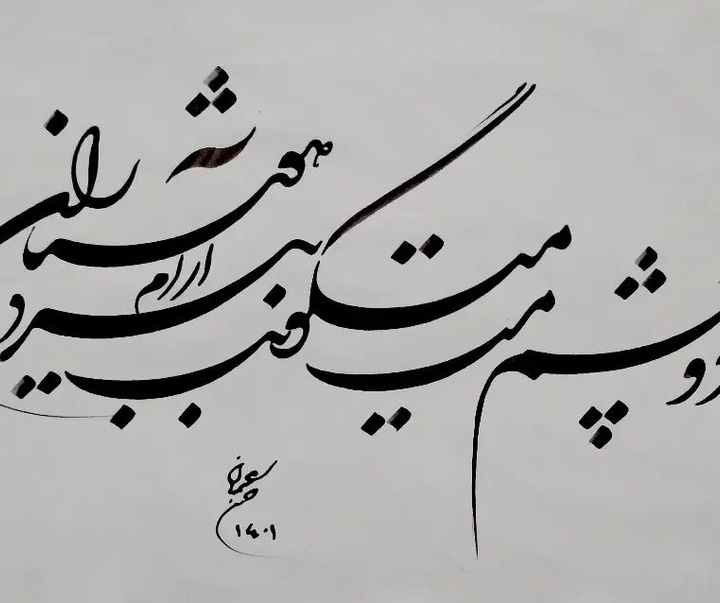 دو چشم مست میگونت ببرد ارام هشیاران
۱۴۰۱